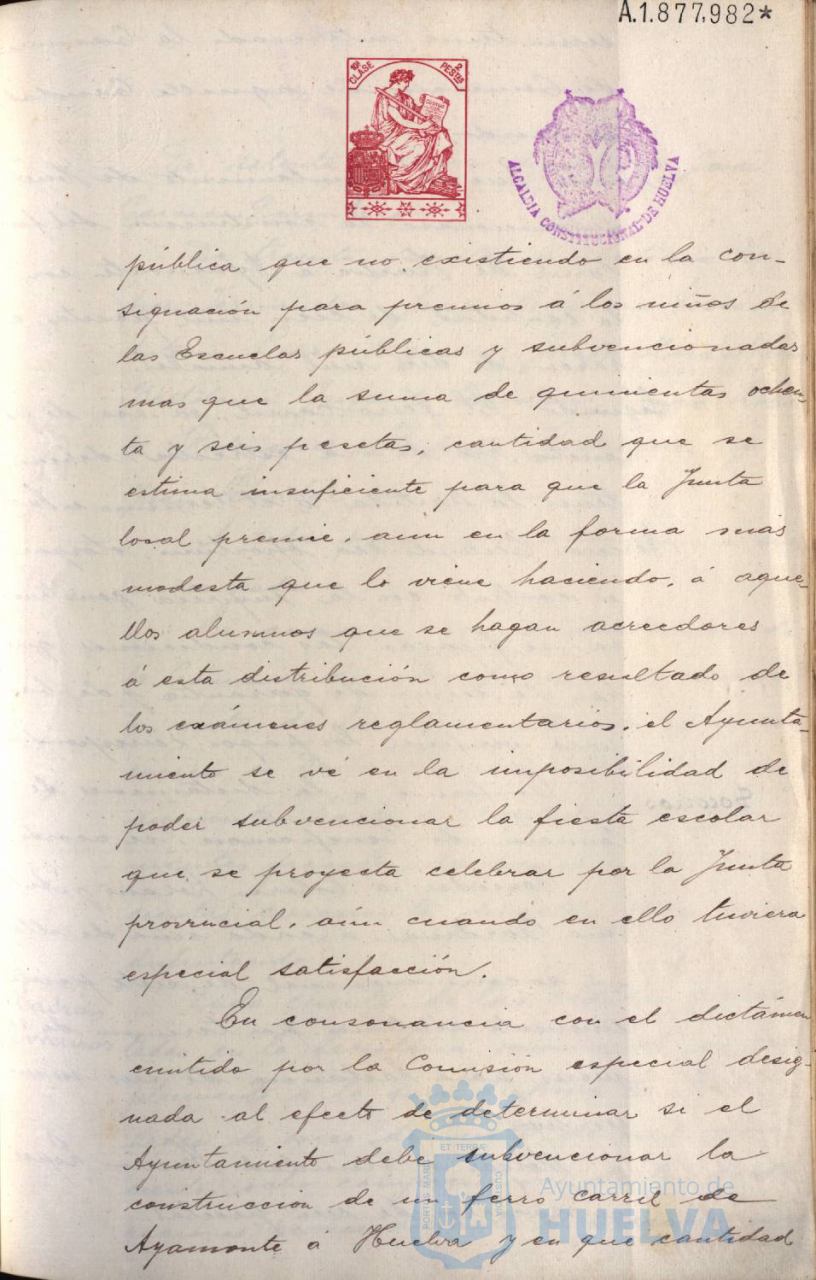 A.1.877,982*
10ª CLASE 2 PESTAS
ALCALDIA CONSTITUCIONAL DE HUELVA
pública que no existiendo en la con-
signación para premios á los niños de
las Escuelas públicas y subvencionadas
mas que la suma de quinientas ochen-
ta y seis pesetas, cantidad que se
estima insuficiente para que la Junta
local premie, aún en la forma mas
modesta que lo viene haciendo, á aque-
llos alumnos que se hagan acreedores
á esta distribución como resultado de
los exámenes reglamentarios, el Ayunta-
miento se vé en la imposibilidad de
poder subvencionar la fiesta escolar
que se proyecta celebrar por la Junta
provincial, aún cuando en ello tuviera
especial satisfacción.
En consonancia con el dictámen
emitido por la Comisión especial desig-
nada al efecto de determinar si el
Ayuntamiento debe subvencionar la
construcción de un ferro carril de
Ayamonte á Huelva y en que cantidad
Ayuntamiento de
HUELVA